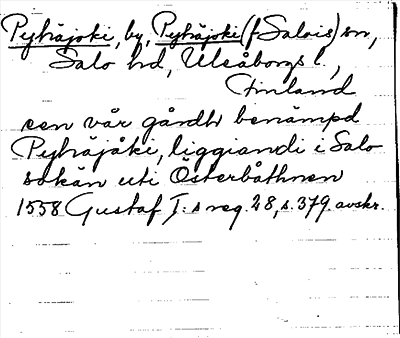 Pyhäjoki, by, Pyhäjoki (f Salois) sn,
Salo hd, Uleåborgs l.,
Finland
een vår gårdh benämpd
Pyhäjåki, liggiandi i Salo
sokän uti Österbåthnen
1558 Gustaf I:s reg. 28, s. 379. avskr.